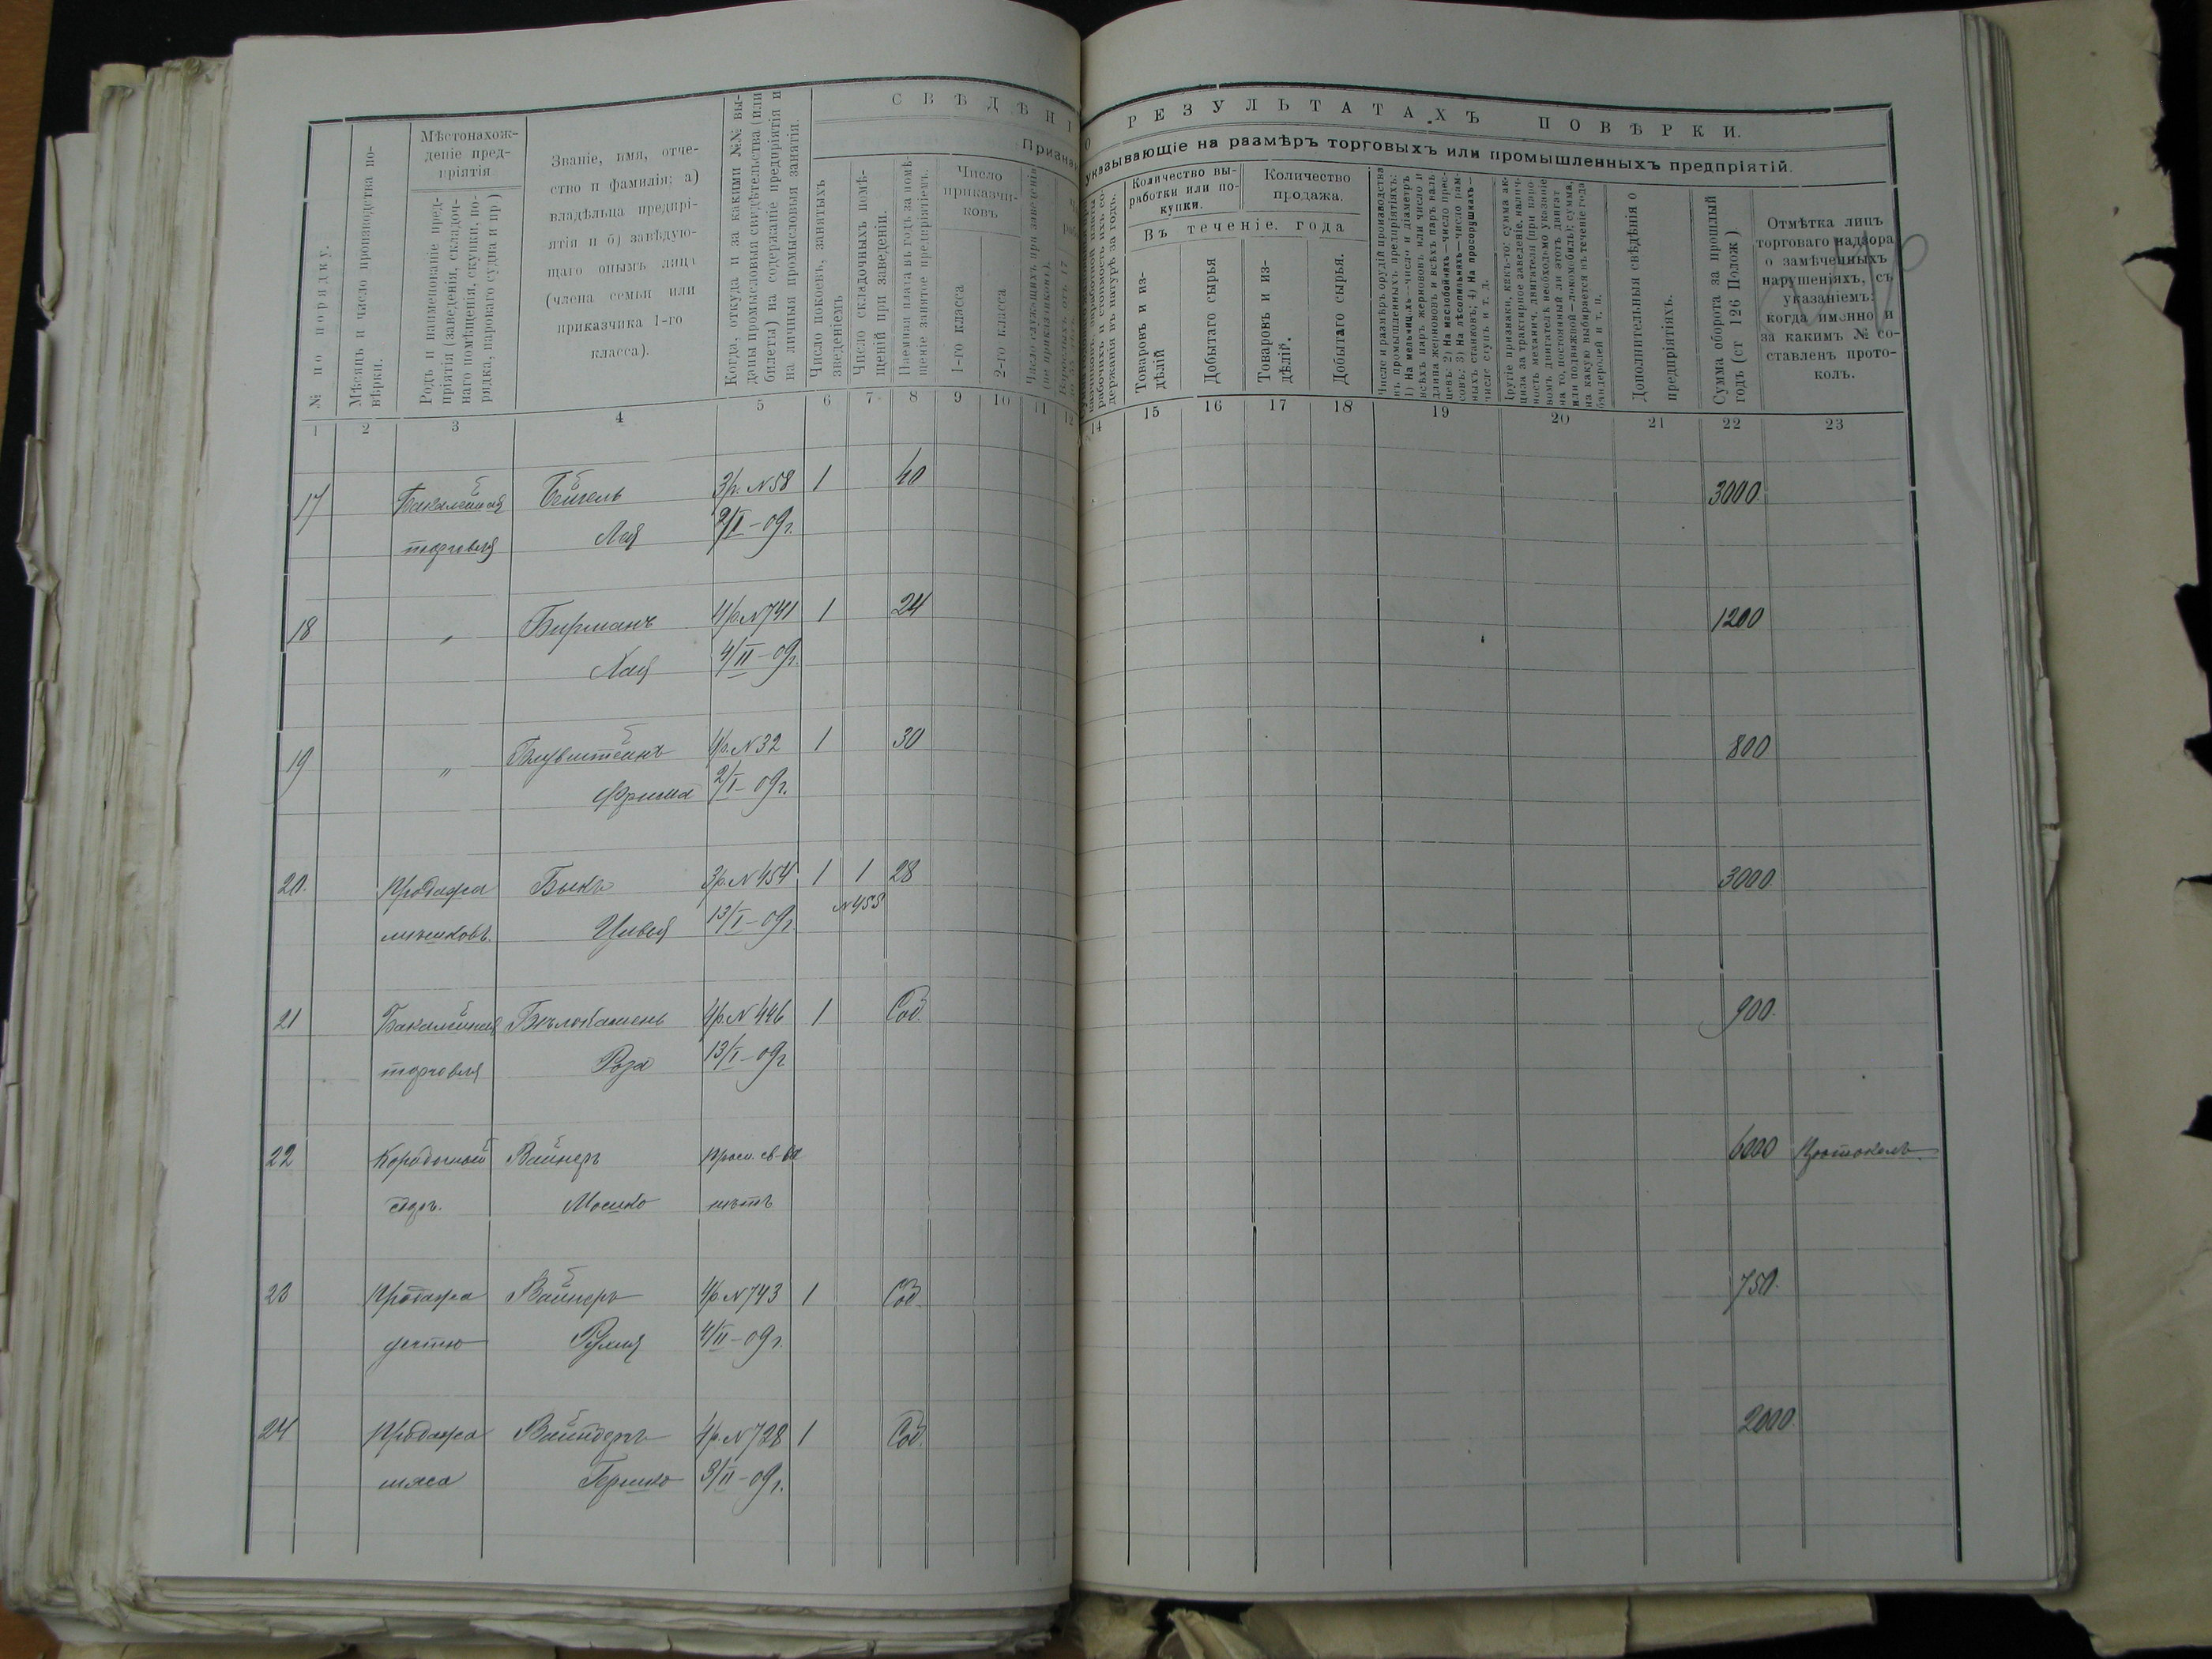 СВѢДѢНІ
О РЕЗУЛЬТАТАХЪ ПОВѢРКИ.
Признаки
указывающіе на размѣръ торговыхъ или промышленныхъ предпріятій.
№ по порядку.
Мѣсяцъ и число производства по-
вѣрки.
Мѣстонахож-
деніе пред-
пріятія
Родъ и наименованіе пред-
пріятія (заведенія, складоч-
наго помѣщенія, скупки, по-
рядка, парового судна и пр.)
Званіе, имя, отче-
ство и фамилія: а)
владѣльца предпрі-
ятія и б) завѣдую-
щаго онымъ лица
(члена семьи или
приказчика 1-го
класса).
Когда, откуда и за какими №№ вы-
даны промысловыя свидѣтельства (или
билеты) на содержаніе предпріятія и
на личныя промысловыя занятія.
Число покоевъ, занятыхъ
зведеніемъ
Число складочныхъ помѣ-
щеній при заведеніи.
Наемная плата въ годъ за помѣ-
щеніе занятое предпріятіемъ.
Число
приказчи-
ковъ
1-го класса
2-го класса
Число служащихъ при заведеніи
(не приказчиковъ).
рабочихъ и стоимость ихъ со-
держанія въ натурѣ за годъ.
Количество вы-
работки или по-
купки.
Количество
продажа.
Въ теченіе. года
Товаровъ и из-
дѣлій
Добытаго сырья
Товаровъ и из-
дѣлій.
Добытаго сырья.
Число и размѣръ орудій производства
въ промышленныхъ предпріятіяхъ:
1) На мельницахъ—число и діаметръ
всѣхъ паръ жернововъ или число и
длина жернововъ и всѣхъ паръ валь-
цевъ: 2) На маслобойняхъ—число прес-
совъ: 3) На лѣсопильняхъ—число рам-
ныхъ станковъ; 4) На просорушкахъ—
число ступъ и т. д.
Другіе признаки, какъ-то: сумма ак-
циза за трактирное заведеніе, налич-
ность механич. двигателя (при паро-
вомъ двигателѣ необходимо указаніе
на то, постоянный ли этотъ двигат.
или подвижной—локомобиль); сумма,
на какую выбирается въ теченіе года
бандеролей и т. п.
Дополнительныя свѣдѣнія о
предпріятіяхъ.
Сумма оборота за прошлый
годъ (ст 126 Полож )
Отмѣтка лицъ
торговаго надзора
о замѣченныхъ
нарушеніяхъ, съ
указаніемъ:
когда именно и
за какимъ № со-
ставленъ прото-
колъ.
1 2 3 4 5 6 7 8 9 10 11 12 14 15 16 17 18 19 20 21 22 23
17 Бакалейная Бейгель 3р. N58 1 40 3000
торговля Лея 2/I-09г.
18 „ Бирманъ 4р. N741 1 24 1200
Хая 4/II-09г.
19 „ Блувштейнъ 4р. N32 1 30 800
Фрима 2/I-09г.
20. Продажа Быкъ 3р. N454 1 1 28 3000.
мѣшковъ. Цивья 13/I-09г N455
21 Бакалейная Бѣлокамень 4р. N446 1 Соб. 900.
торговля Роза 13/I-09г
22 Коробочный Вайнеръ Пром. св-ва 6000 Протоколъ.
сборъ. Мошко нѣтъ
23 Продажа Вайнеръ 4р N743 1 Соб. 750.
жестью Рухля 4/II-09г.
24 Продажа Вайндеръ 4р. N728 1 Соб. 2000.
мяса Гершко 3/II-09г.